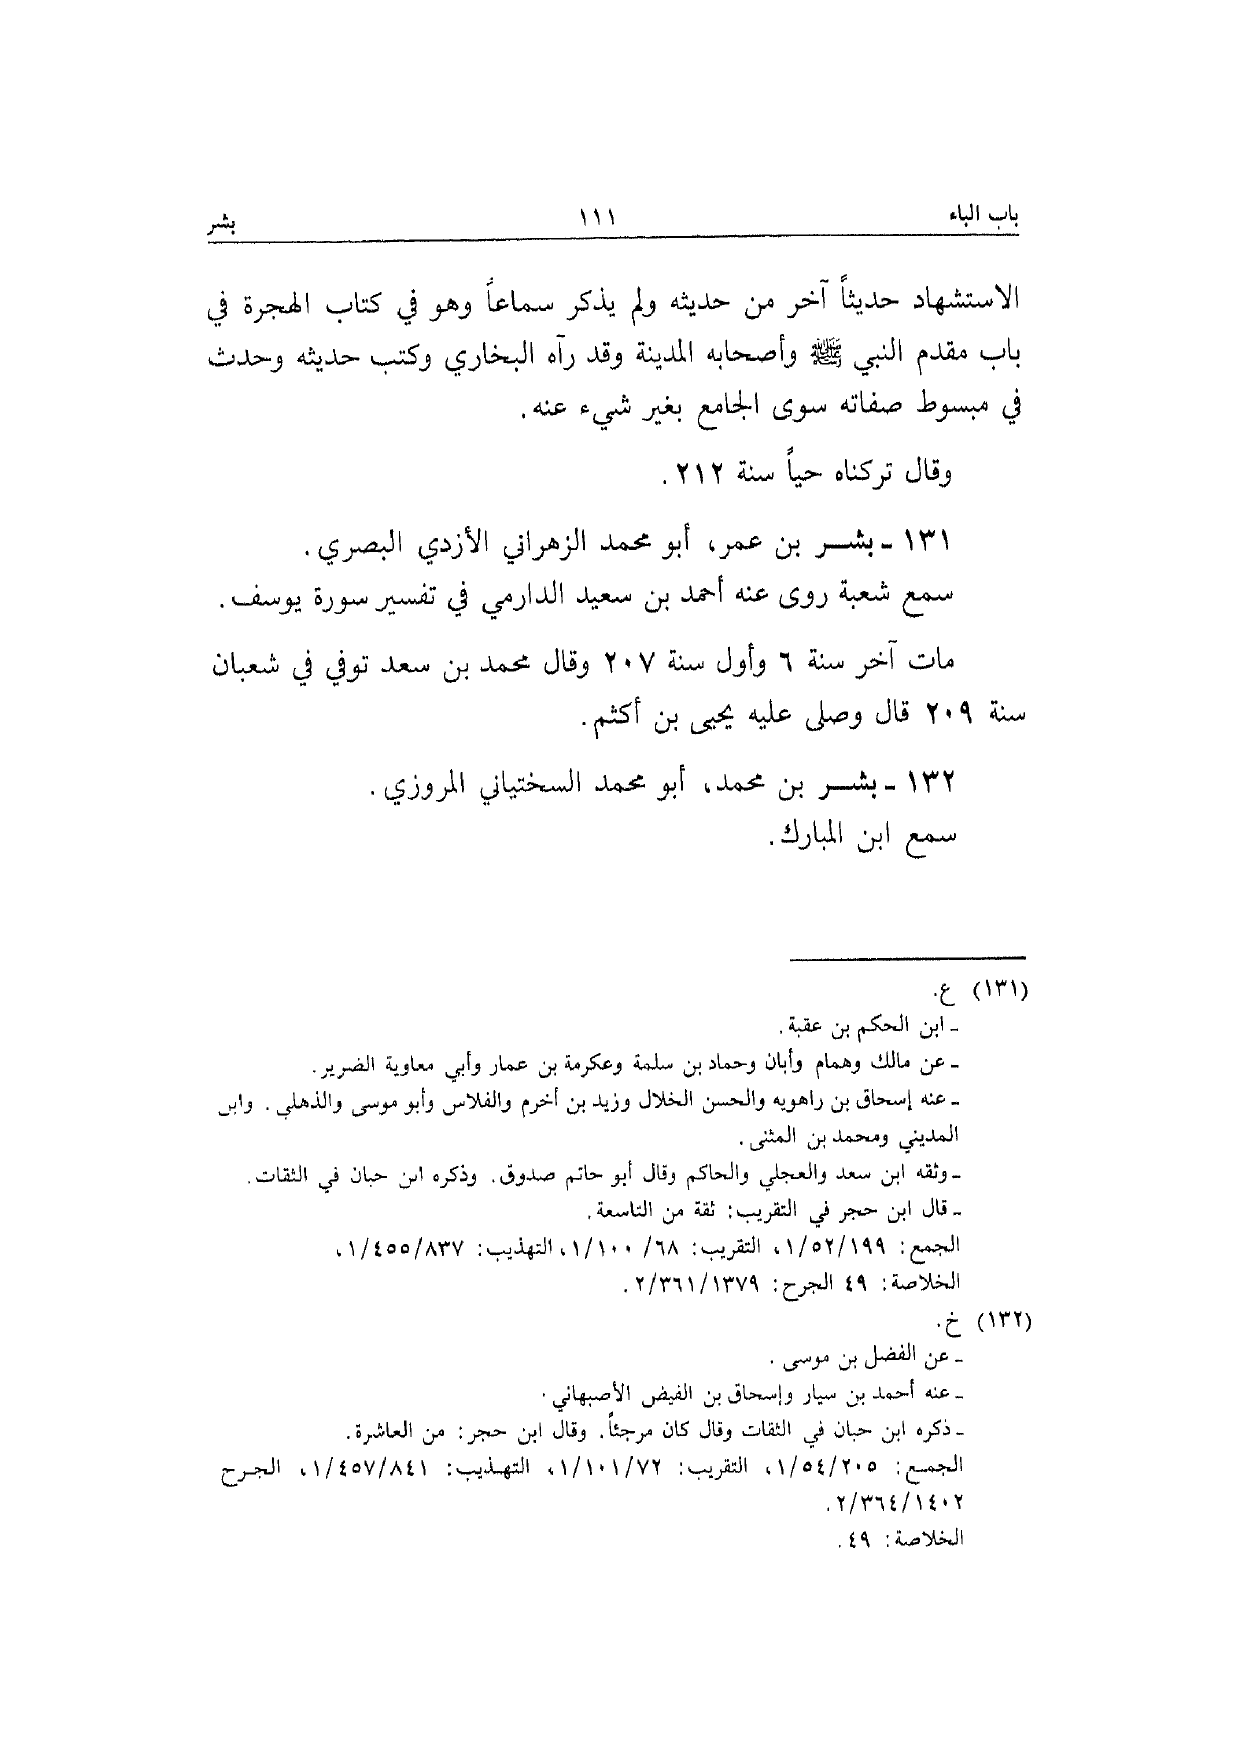 باب الباء ١١١ بشر
الاستشهاد حديثاً آخر من حديثه ولم يذكر سماعاً وهو في كتاب الهجرة في
باب مقدم النبي ﷺ وأصحابه المدينة وقد رآه البخاري وكتب حديثه وحدث
في مبسوط صفاته سوى الجامع بغير شيء عنه.
وقال تركناه حياً سنة ٢١٢.
١٣١ - بشر بن عمر، أبو محمد الزهراني الأزدي البصري.
سمع شعبة روى عنه أحمد بن سعيد الدارمي في تفسير سورة يوسف.
مات آخر سنة ٦ وأول سنة ٢٠٧ وقال محمد بن سعد توفي في شعبان
سنة ٢٠٩ قال وصلى عليه يحيى بن أكثم.
١٣٢ - بشر بن محمد، أبو محمد السختياني المروزي.
سمع ابن المبارك.
(١٣١) ع.
- ابن الحكم بن عقبة.
- عن مالك وهمام وأبان وحماد بن سلمة وعكرمة بن عمار وأبي معاوية الضرير.
- عنه إسحاق بن راهويه والحسن الخلال وزيد بن أخرم والفلاس وأبو موسى والذهلي. وابن
المديني ومحمد بن المثنى.
- وثقه ابن سعد والعجلي والحاكم وقال أبو حاتم صدوق. وذكره ابن حبان في الثقات.
- قال ابن حجر في التقريب: ثقة من التاسعة.
الجمع: ١/٥٢/١٩٩، التقريب: ١/١٠٠/٦٨، التهذيب: ١/٤٥٥/٨٣٧،
الخلاصة: ٤٩ الجرح: ٢/٣٦١/١٣٧٩.
(١٣٢) خ.
- عن الفضل بن موسى.
- عنه أحمد بن سيار وإسحاق بن الفيض الأصبهاني.
- ذكره ابن حبان في الثقات وقال كان مرجئاً. وقال ابن حجر: من العاشرة.
الجمع: ١/٥٤/٢٠٥، التقريب: ١/١٠١/٧٢، التهذيب: ١/٤٥٧/٨٤١، الجرح
٢/٣٦٤/١٤٠٢.
الخلاصة: ٤٩.